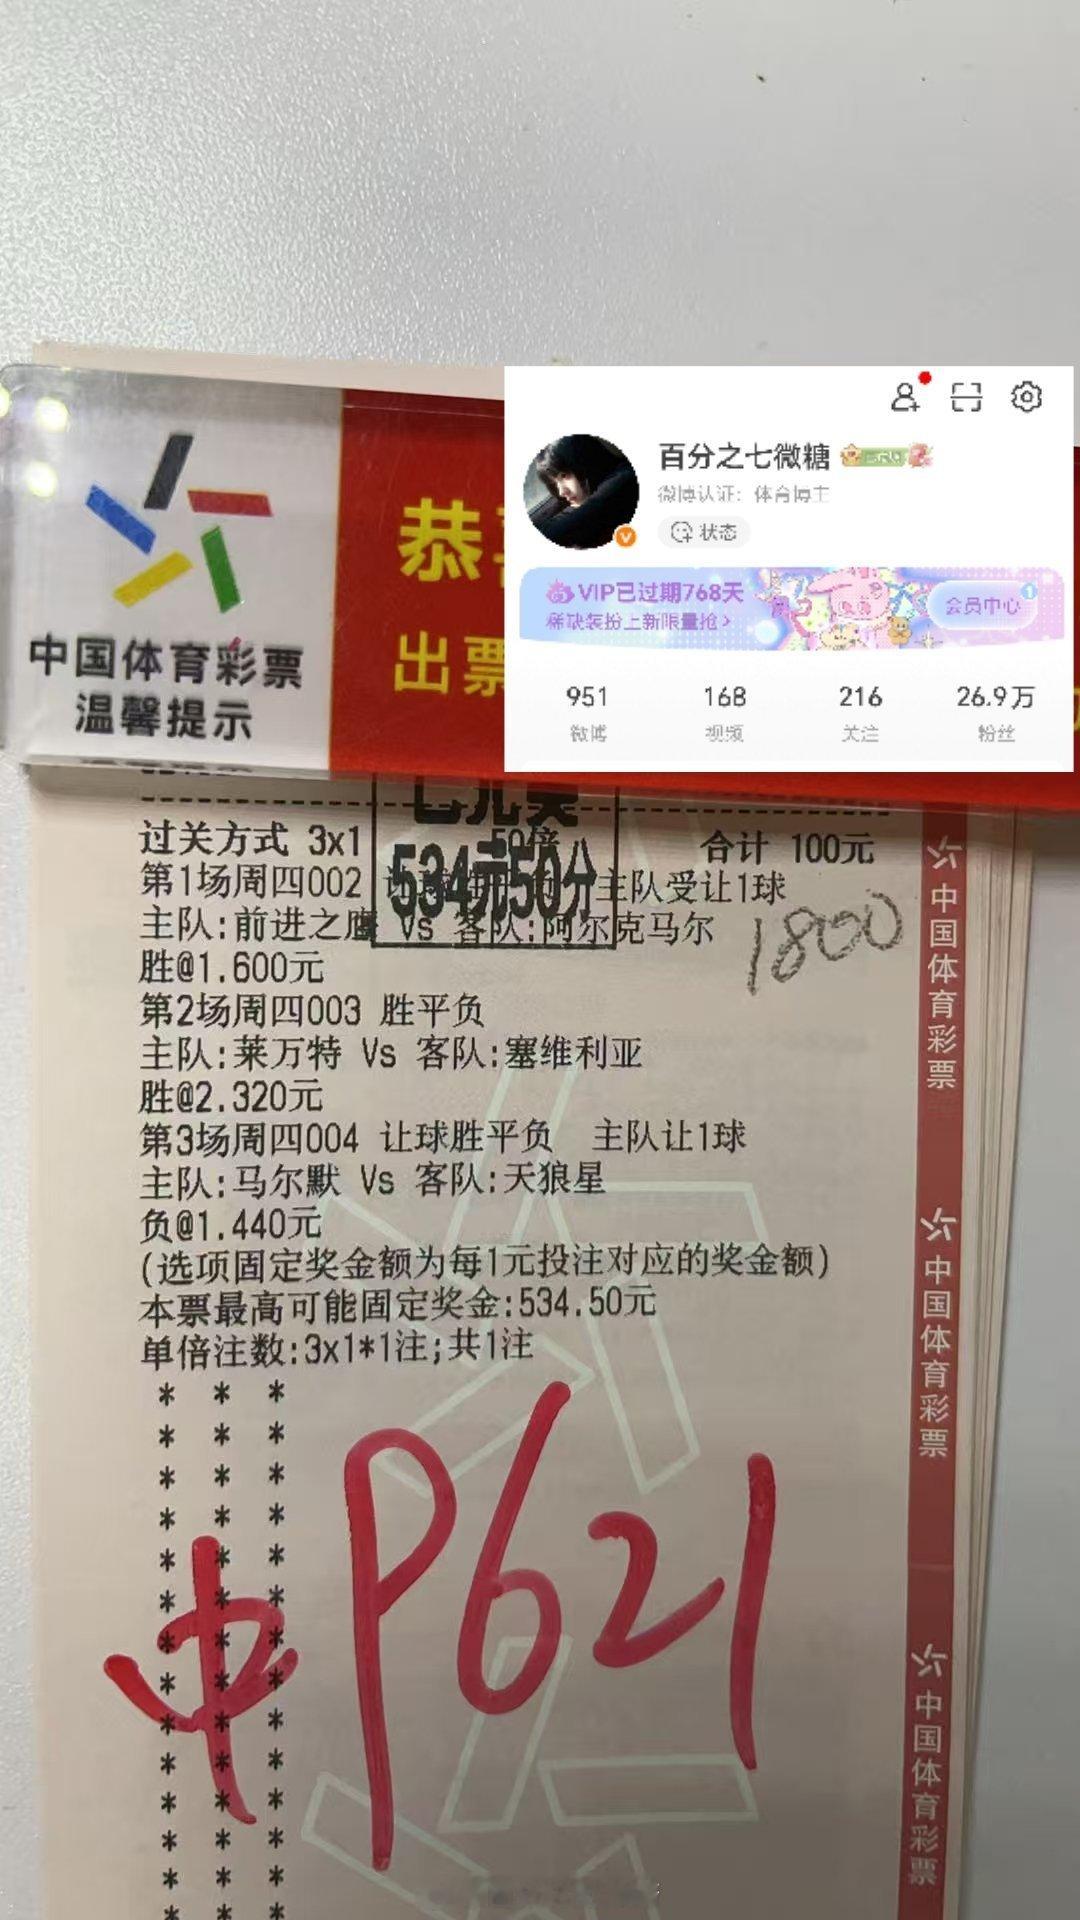 中国体育彩票
温馨提示
恭
出票
百分之七微糖
微博认证：体育博主
状态
VIP已过期768天
稀缺装扮上新限量抢>
会员中心
1
951
168
216
26.9万
微博
视频
关注
粉丝
已兑奖
534元50分
过关方式 3x1
50倍
合计 100元
第1场周四002
主队受让1球
主队:前进之鹰 Vs 客队:阿尔克马尔
1800
胜@1.600元
第2场周四003 胜平负
主队:莱万特 Vs 客队:塞维利亚
胜@2.320元
第3场周四004 让球胜平负 主队让1球
主队:马尔默 Vs 客队:天狼星
负@1.440元
(选项固定奖金额为每1元投注对应的奖金额)
本票最高可能固定奖金:534.50元
单倍注数:3x1*1注;共1注
中 P621
中国体育彩票
中国体育彩票
中国体育彩票